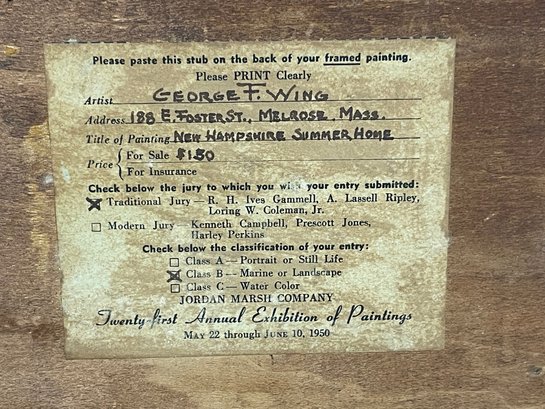 Please paste this stub on the back of your framed painting.
Please PRINT Clearly
Artist GEORGE F. WING
Address 188 E. FOSTER ST., MELROSE, MASS.
Title of Painting NEW HAMPSHIRE SUMMER HOME
Price { For Sale $150
For Insurance
Check below the jury to which you wish your entry submitted:
X Traditional Jury — R. H. Ives Gammell, A. Lassell Ripley,
Loring W. Coleman, Jr.
☐ Modern Jury — Kenneth Campbell, Prescott Jones,
Harley Perkins
Check below the classification of your entry:
☐ Class A — Portrait or Still Life
X Class B — Marine or Landscape
☐ Class C — Water Color
JORDAN MARSH COMPANY
Twenty-first Annual Exhibition of Paintings
MAY 22 through JUNE 10, 1950